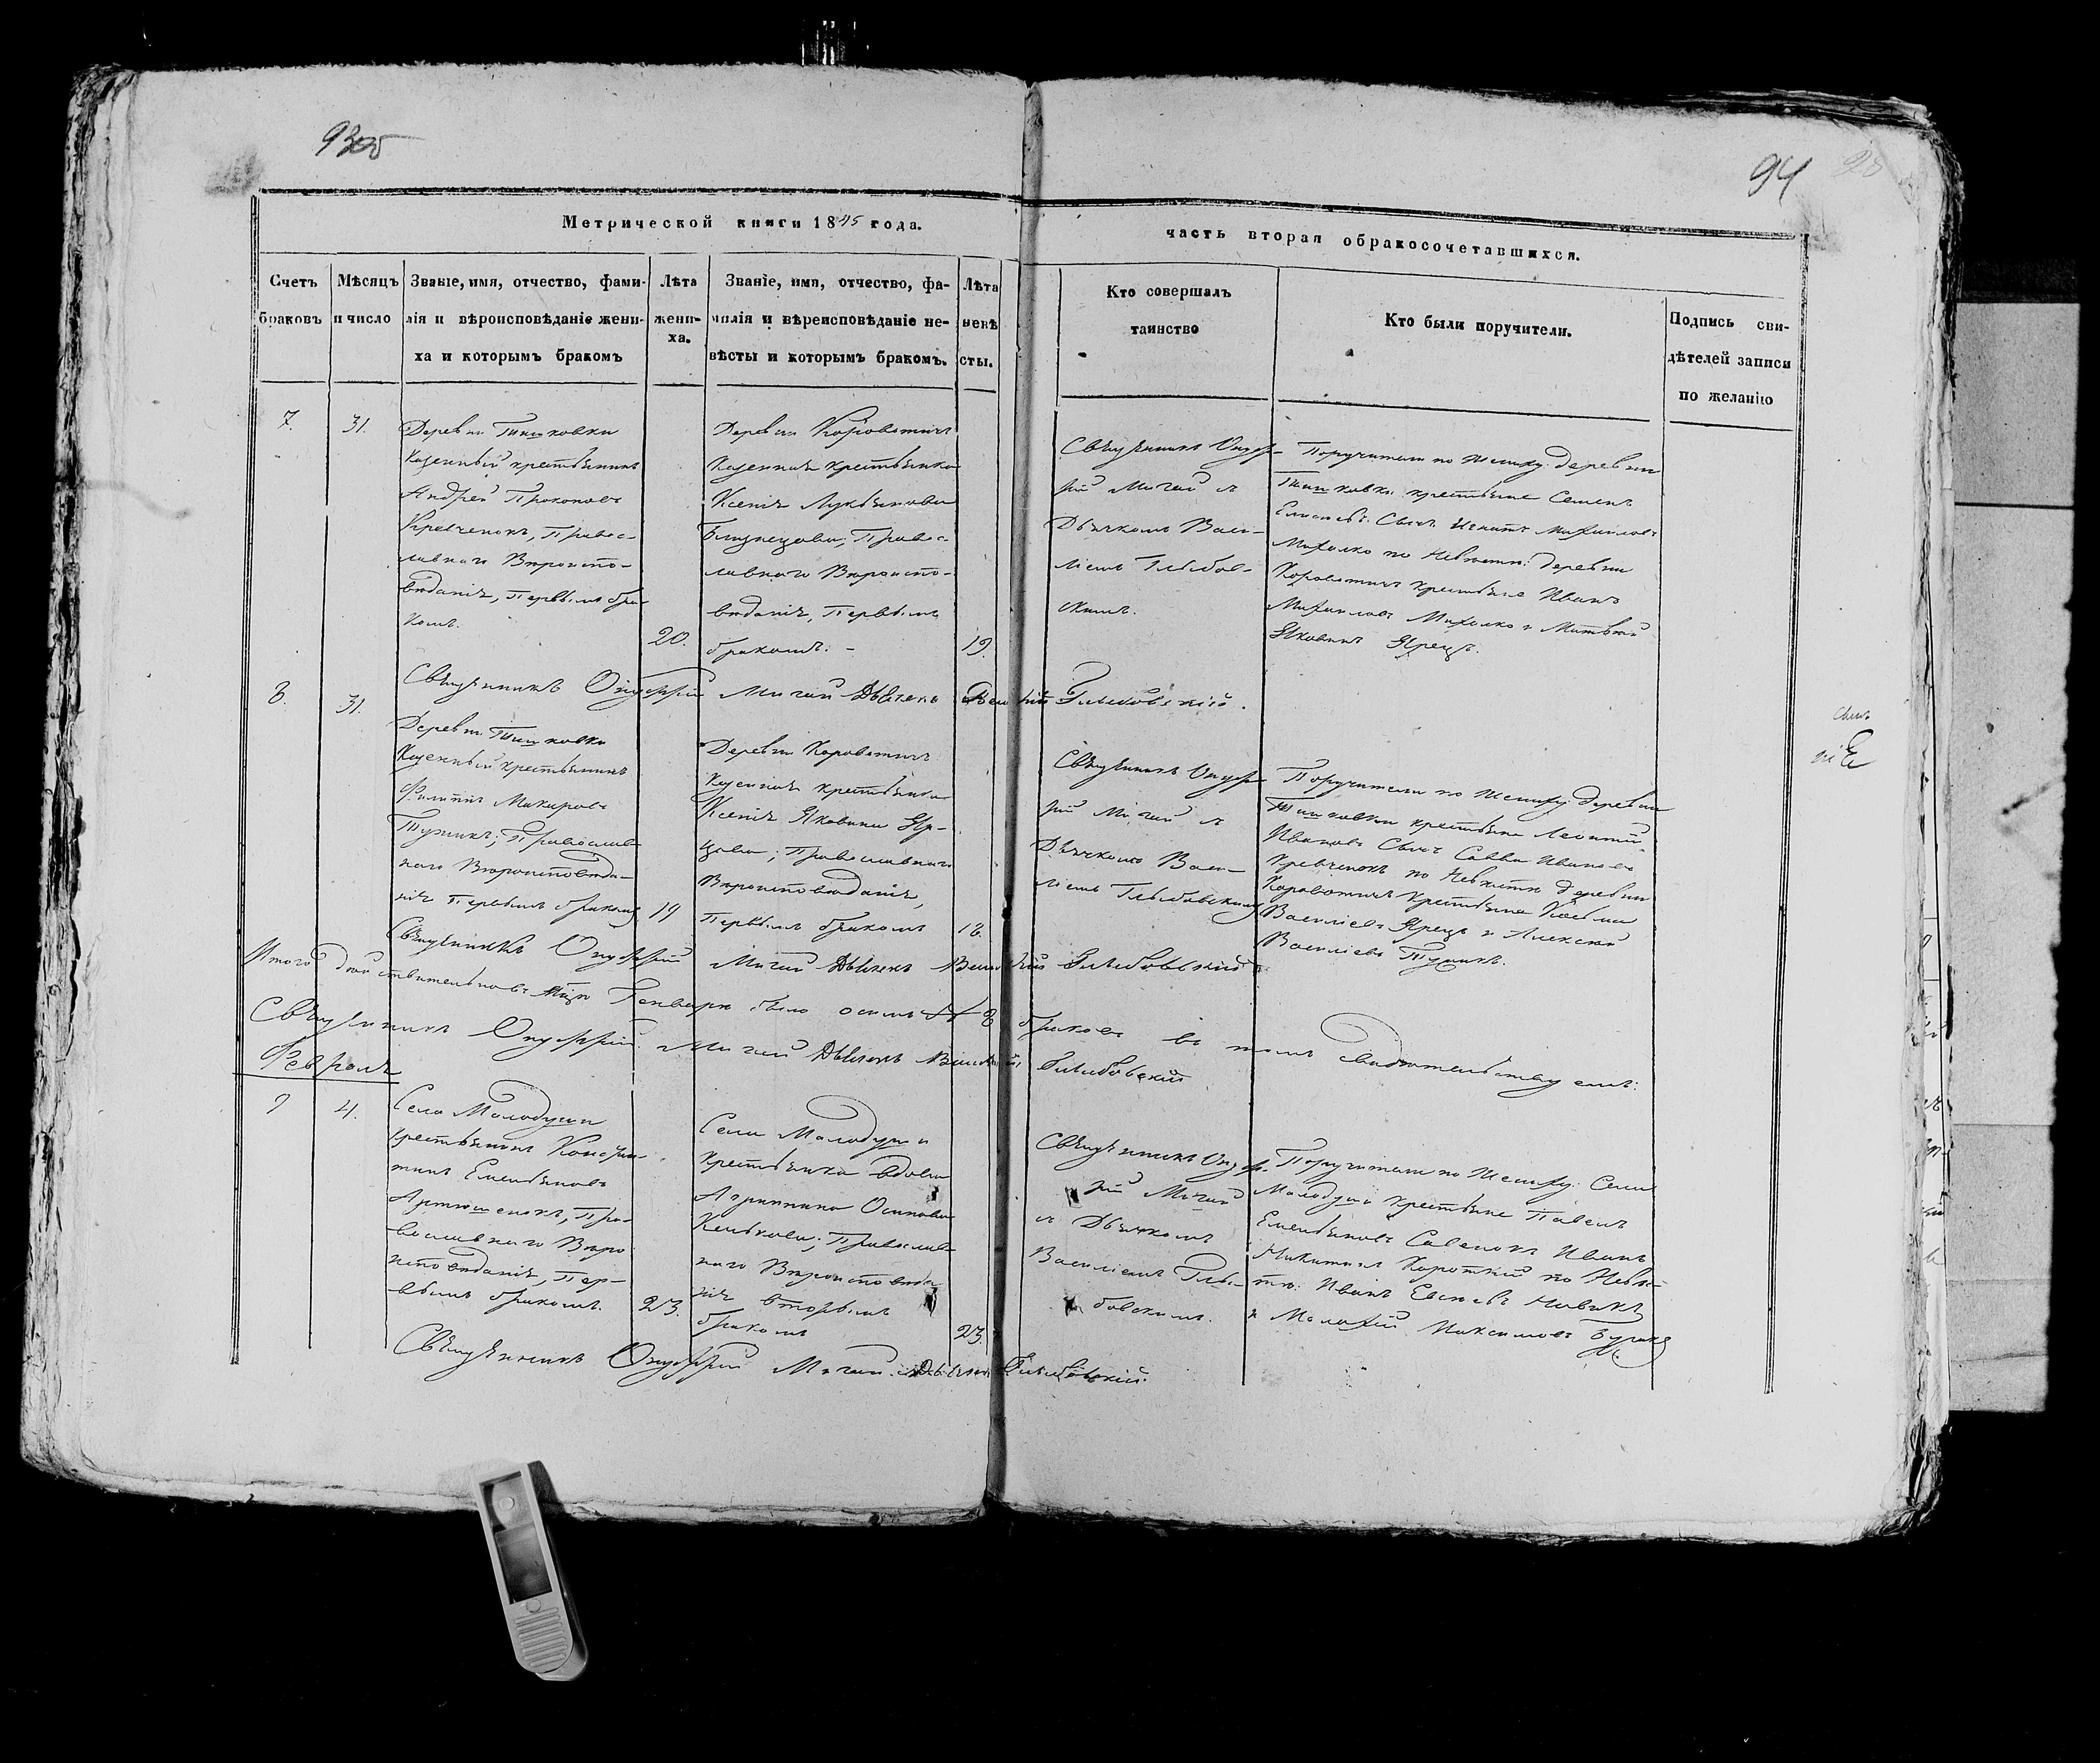 93об
94
Метрической книги 1845 года.
часть вторая обракосочетавшихся.
Счетъ браковъ
Мѣсяцъ и число
Званіе, имя, отчество, фами-
лія и вѣроисповѣданіе жени-
ха и которымъ бракомъ
Лѣта
жени-
ха.
Званіе, имя, отчество, фа-
милія и вѣреисповѣданіе не-
вѣсты и которымъ бракомъ.
Лѣта
невѣ
сты.
Кто совершалъ
таинство
Кто были поручители.
Подпись сви-
дѣтелей записи
по желанію
7.
31.
Деревни Тишковки
Казенный крестьянинъ
Андрей Прокоповъ
Кревченокъ, Правос-
лавнаго Вѣроиспо-
вѣданія, Первымъ бра-
комъ.
20.
Деревни Короватичъ
Казенная крестьянка
Ксенія Лукьянова
Близнецова; Правос-
лавнаго Вѣроиспо-
вѣданія, Первымъ
бракомъ. -
19.
Священникъ Онуф-
рій Мигай съ
Дьячкомъ Васи-
ліемъ Глыбов-
скимъ.
Поручители по Жениху: деревни
Тишковки крестьяне Семенъ
Игнатъ Михайловъ
Михалко по Невѣсте: деревни
Короватичъ крестьяне Иванъ
Михайловъ Михалко и Матвей
Яковинъ Ярецъ.
Священникъ Онуфрій Мигай Дьячекъ Василій Глыбовскій.
8.
31.
Деревни Тишковки
Казенный крестьянинъ
Филиппъ Макаровъ
Тупикъ; Православ-
наго Вѣроисповѣда-
нія Первымъ бракомъ
19
Деревни Короватичъ
Казенная крестьянка
Ксенія Яковина Яр-
цова; Православнаго
Вѣроисповѣданія,
Первымъ бракомъ
18.
Священникъ Онуф-
рій Мигай съ
Дьячкомъ Васи-
ліемъ Глыбовскимъ
Поручители по Жениху: деревни
Тишковки крестьяне Леонтій
Ивановъ Савва Ивановъ
Кревченокъ по Невѣсте деревни
Короватичъ крестьяне Козьма
Василіевъ Ярецъ и Алексей
Василіевъ Тупикъ.
Священникъ Онуфрій Мигай Дьячекъ Василій Глыбовскій
Итого Генварѣ было осимь 8 браковъ въ томъ свидѣтельствуемъ:
Священникъ Онуфрій Мигай Дьячекъ Василій Глыбовскій
Февраль
9
4.
Села Малодуши
крестьянинъ Кондра-
тій Емельяновъ
Артюшенокъ, Пра-
вославнаго Вѣро
исповѣданія, Пер-
вымъ бракомъ.
23.
Села Малодуши
крестьянка вдова
Агрипина Осипова
Православ-
наго Вѣроисповѣда
нія вторымъ
бракомъ
23.
Священникъ Онуф-
рій Мигай
съ Дьячкомъ
Василіемъ Глы-
бовскимъ.
Поручители по Жениху: Села
Малодуши крестьяне Павелъ
Емельяновъ Савенокъ Иванъ
Никитинъ Короткий по Невѣ-
сте: Иванъ Евсѣевъ Новикъ
и Малахій Максимовъ Буракъ
Священникъ Онуфрій Мигай Дьячекъ Глыбовскій.